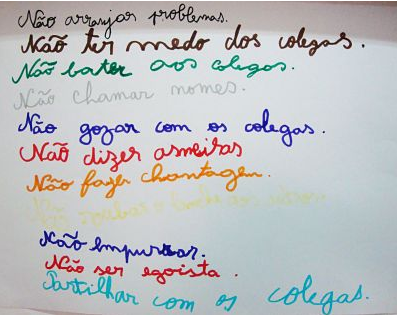 Não arranjar problemas.
Não ter medo dos colegas.
Não bater aos colegas.
Não chamar nomes.
Não gozar com os colegas.
Não dizer asneiras
Não fazer chantagem.
Não roubar o lanche aos
Não empurrar.
Não ser egoista.
Partilhar com os colegas.